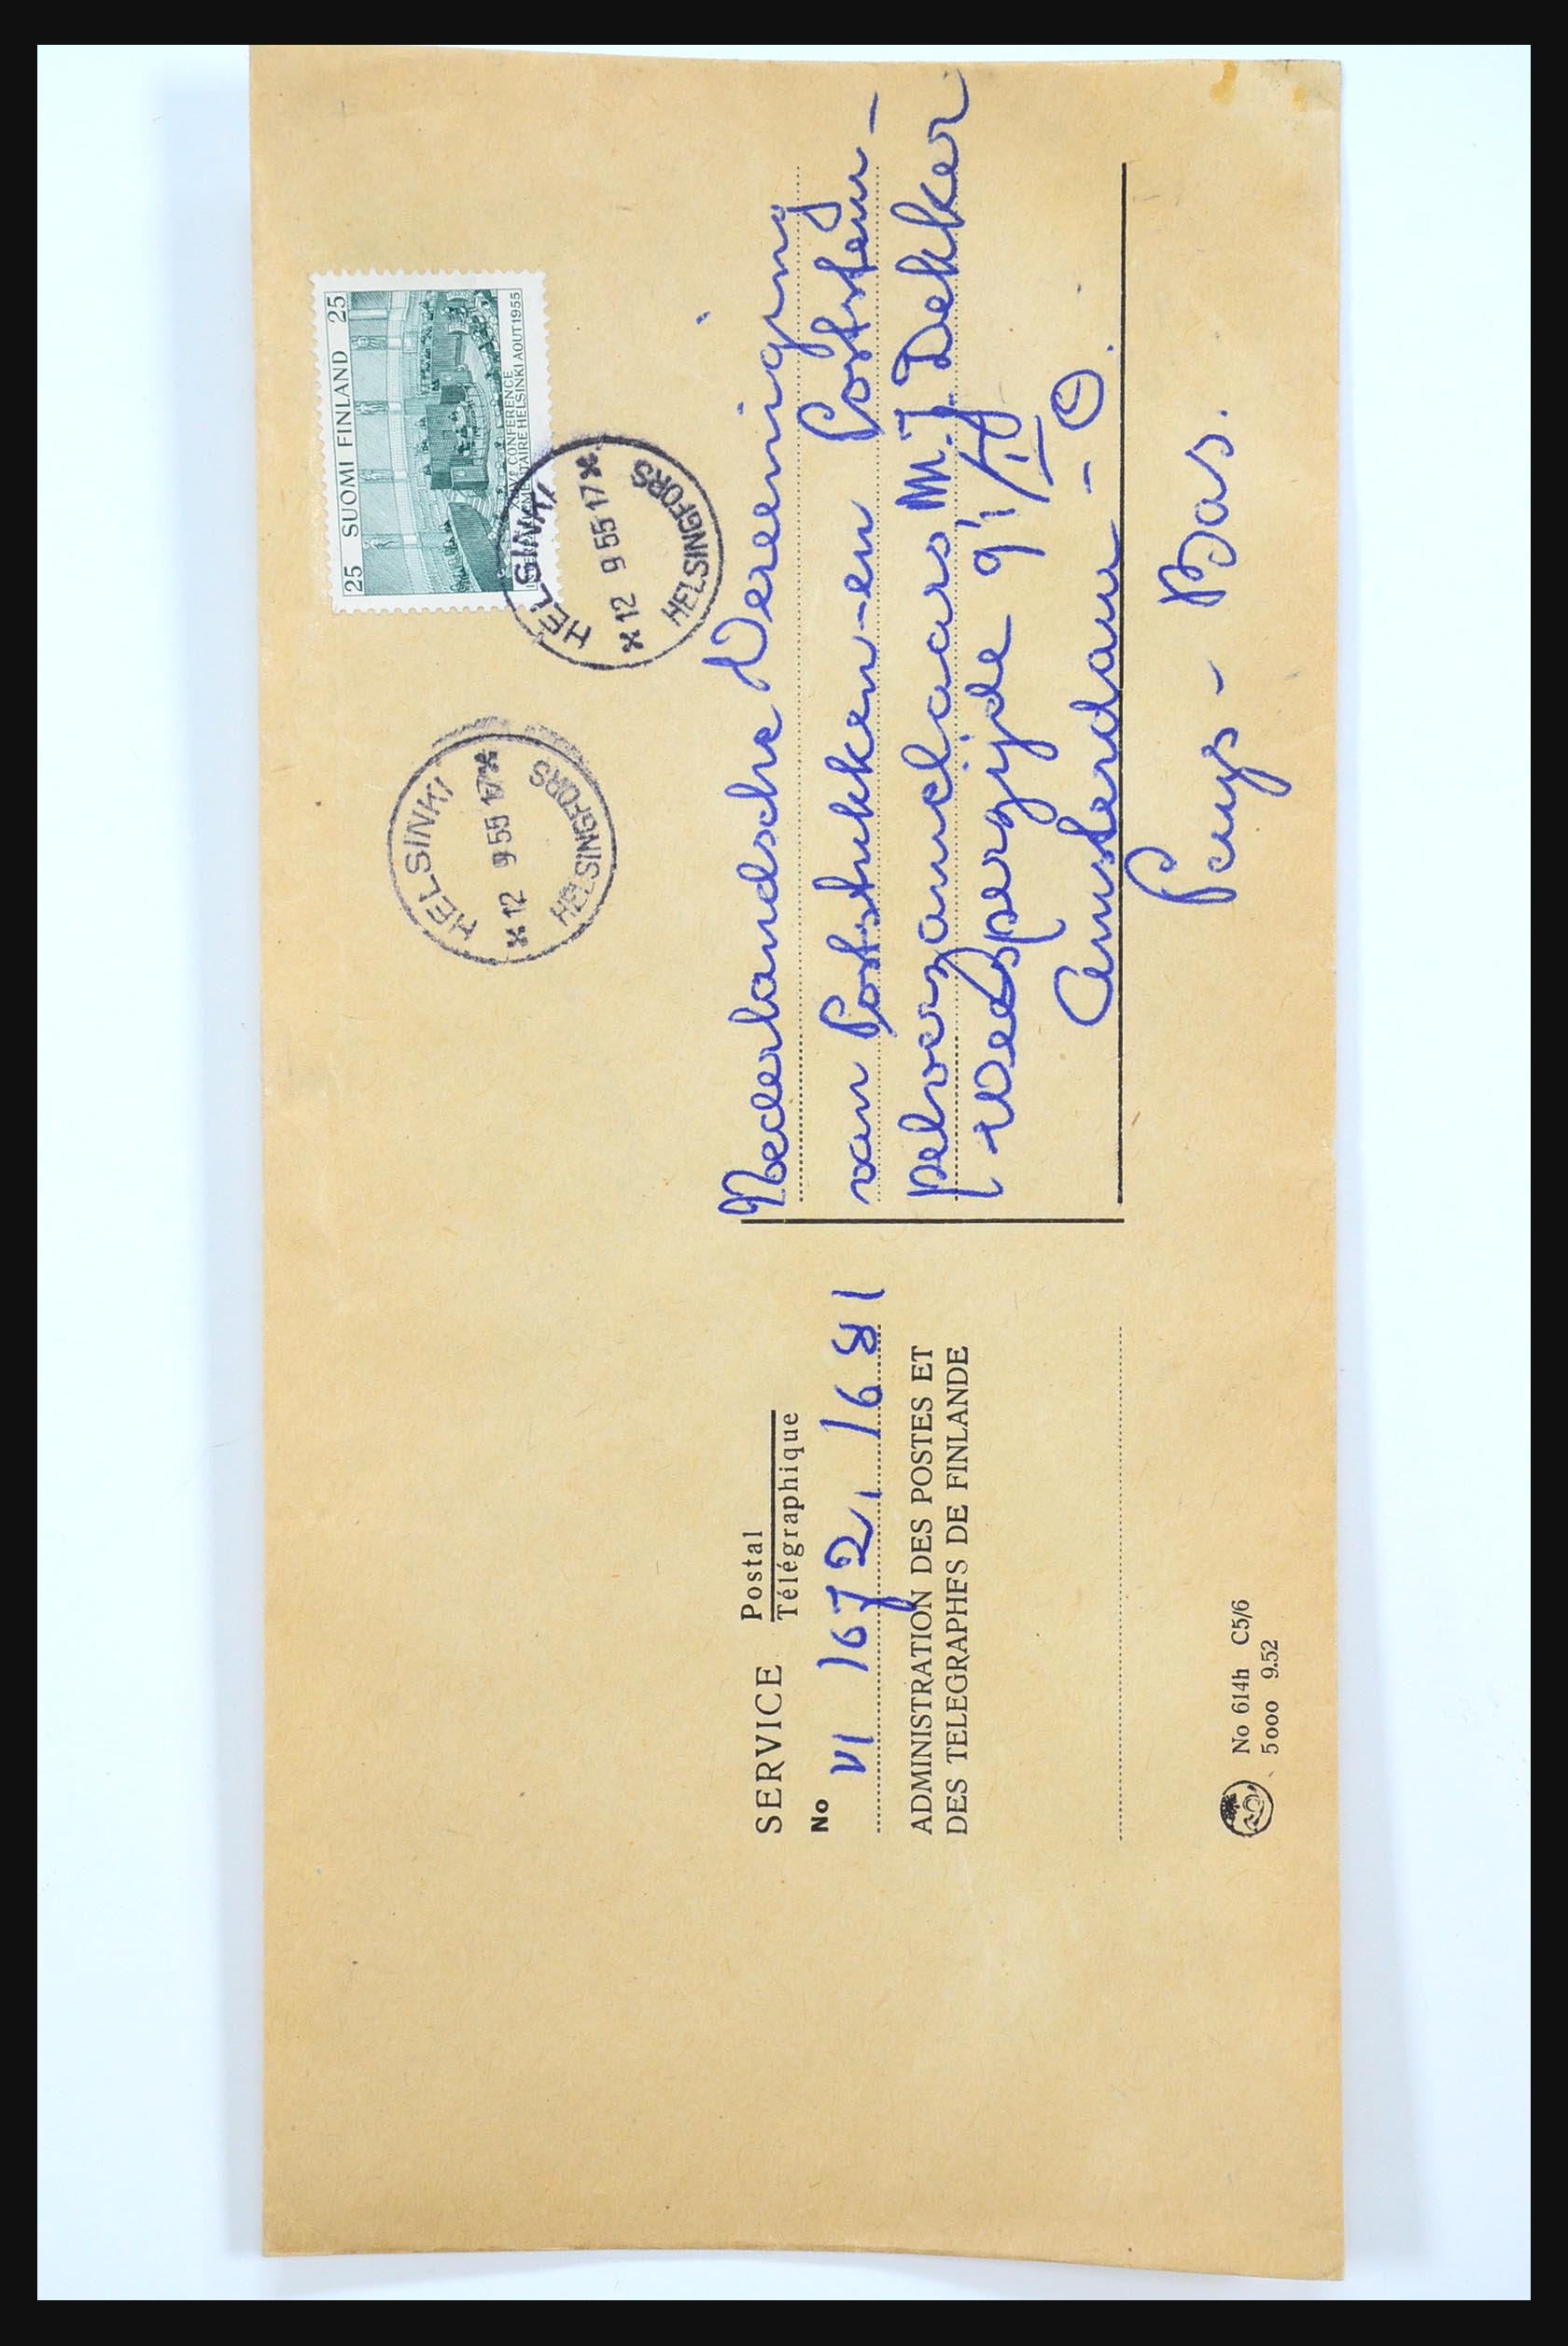 25 SUOMI FINLAND 25
CONFERENCE
HELSINKI AOUT 1955
HELSINKI
12 9 55 17
HELSINGFORS
HELSINKI
12 9 55 17
HELSINGFORS
SERVICE Postal
Télégraphique
No VI 1672, 1681
ADMINISTRATION DES POSTES ET
DES TELEGRAPHES DE FINLANDE
Nederlandsche Vereeniging
van Poststukken-en Poststem-
pelverzamelaars M.J. Dekker
Weesperzijde 91/III
Amsterdam - O.
Pays - Bas.
No 614h C5/6
5000 9.52